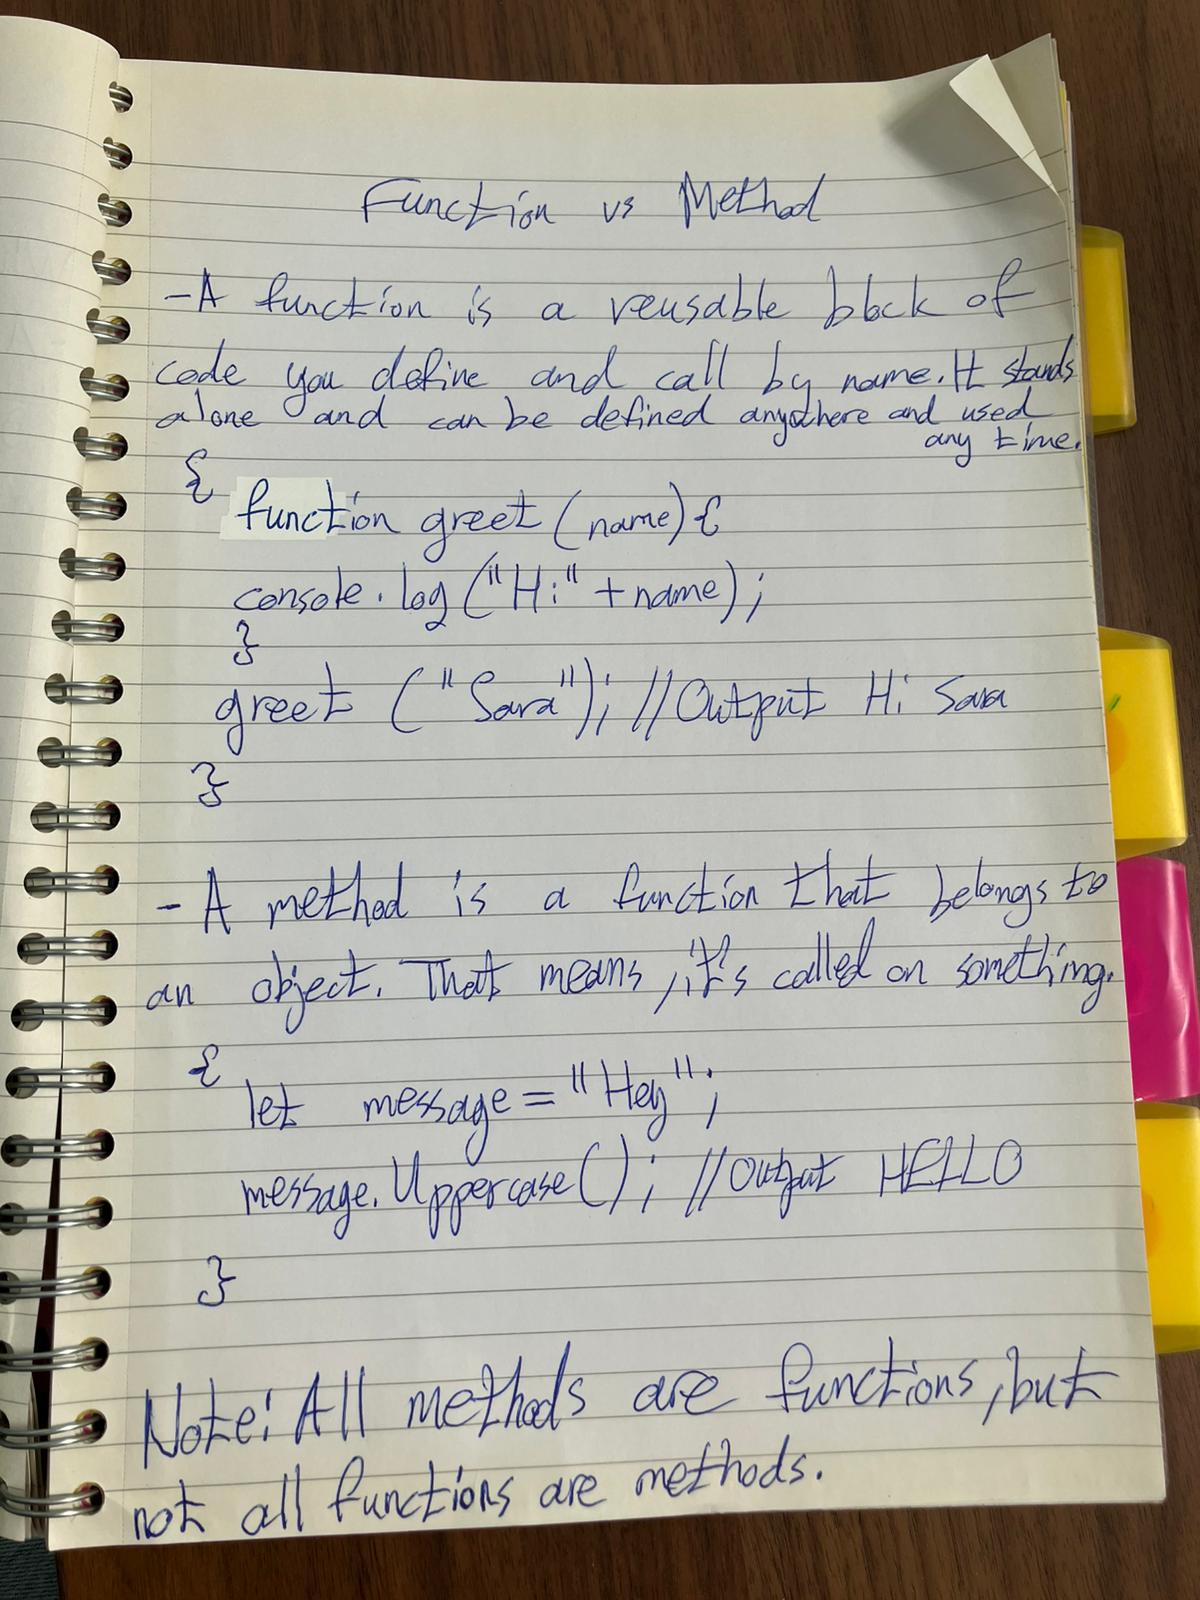 Function vs Method
-A function is a reusable block of
code you define and call by name. It stands
alone and can be defined anywhere and used
any time.
{
function greet (name) {
console.log ("Hi" + name);
}
greet ("Sara"); //Output Hi Sara
}
-A method is a function that belongs to
an object. That means, it's called on something.
{
let message = "Hey";
message.Uppercase(); //Output HELLO
}
Note: All methods are functions, but
not all functions are methods.